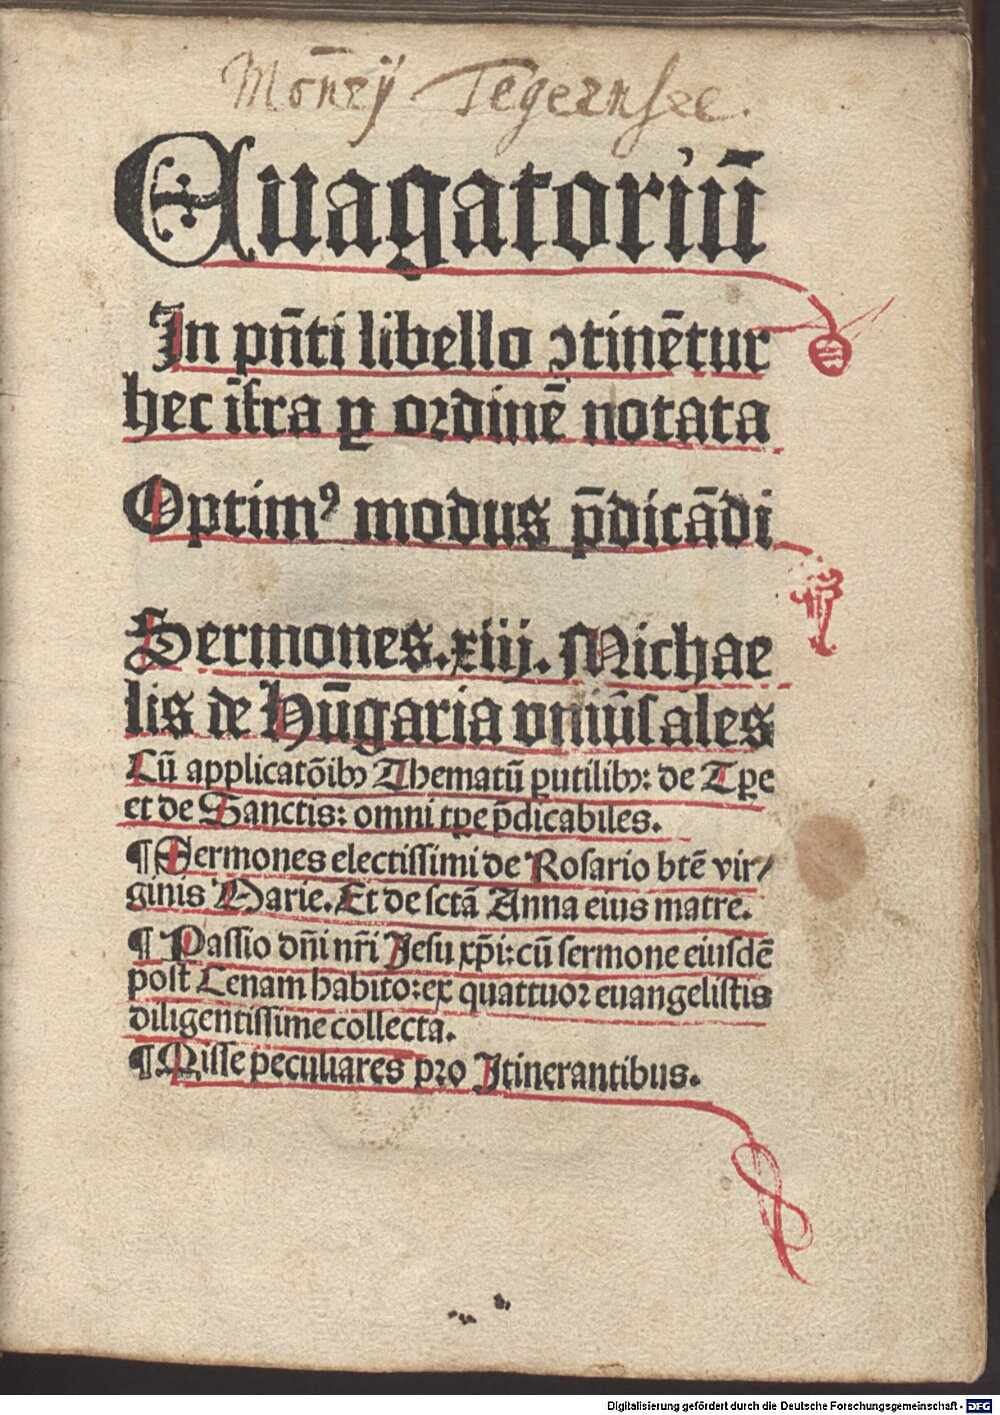 Mon̄rij Tegernsee.
Euagatoriū
In pn̄ti libello ↄtinētur
hec īfra ꝑ ordinē notata
Optimꝰ modus p̄dicādi
Sermones.xiij. Michae
lis de Hūgaria vniūſales
Cū applicatōibꝫ Thematū ꝑutilibꝫ: de Tꝑe
et de Sanctis: omni tꝑe p̄dicabiles.
¶ Sermones electiſſimi de Roſario btē vir/
ginis Marie. Et de ſctā Anna eius matre.
¶ Paſſio dn̄i nr̄i Jeſu xp̄i: cū ſermone eiuſdē
poſt Cenam habito: ex quattuor euangeliſtis
diligentiſſime collecta.
¶ Miſſe peculiares pro Jtinerantibus.
Digitalisierung gefördert durch die Deutsche Forschungsgemeinschaft - DFG